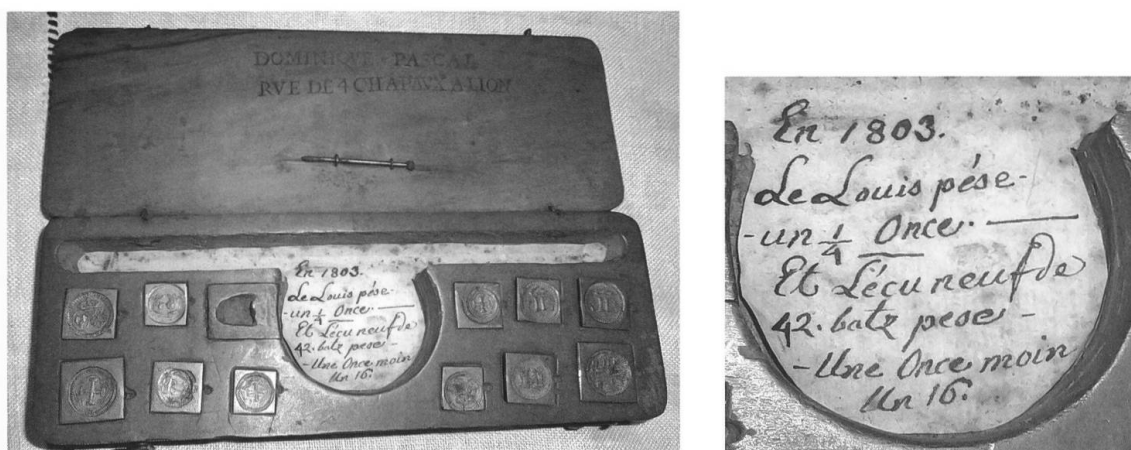 DOMINIQUE · PASCAL
RVE DE 4 CHAPAVX A LION
En 1803.
Le Louis pése-
-un 1/4 Once.
Et L'écu neuf de
42. batz pese-
-Une Once moin
Un 16.
En 1803.
Le Louis pése-
-un 1/4 Once.
Et L'écu neuf de
42. batz pese-
-Une Once moin
Un 16.